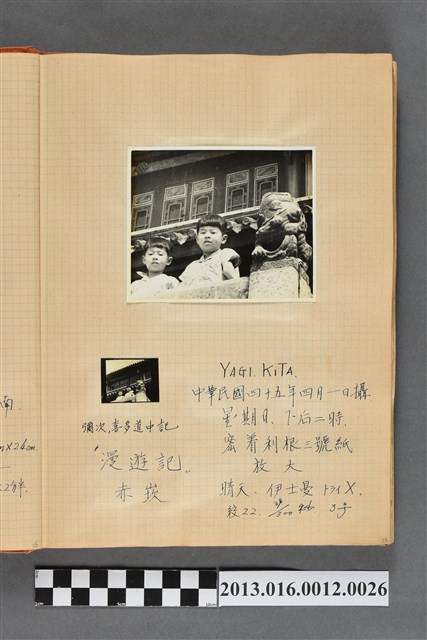 南.
×24cm
YAGI. KITA.
中華民國四十五年四月一日攝
星期日、下后二時.
密着利根三號紙
放大
晴天. 伊士曼 トライX,
絞22.
3号
彌次.喜多道中記
"漫遊記"
赤崁
2013.016.0012.0026